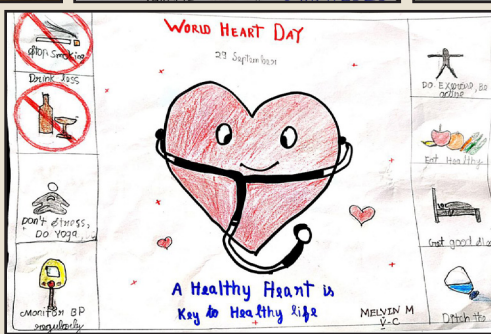 WORLD HEART DAY
29 September
Stop Smoking
Drink less
Don't stress,
Do YOGA
Monitor BP
regularly
DO EXERCISE, Be
active
Eat Healthy
Get good
Ditch the
A Healthy Heart is
Key to Healthy life
MELVIN M
V-C